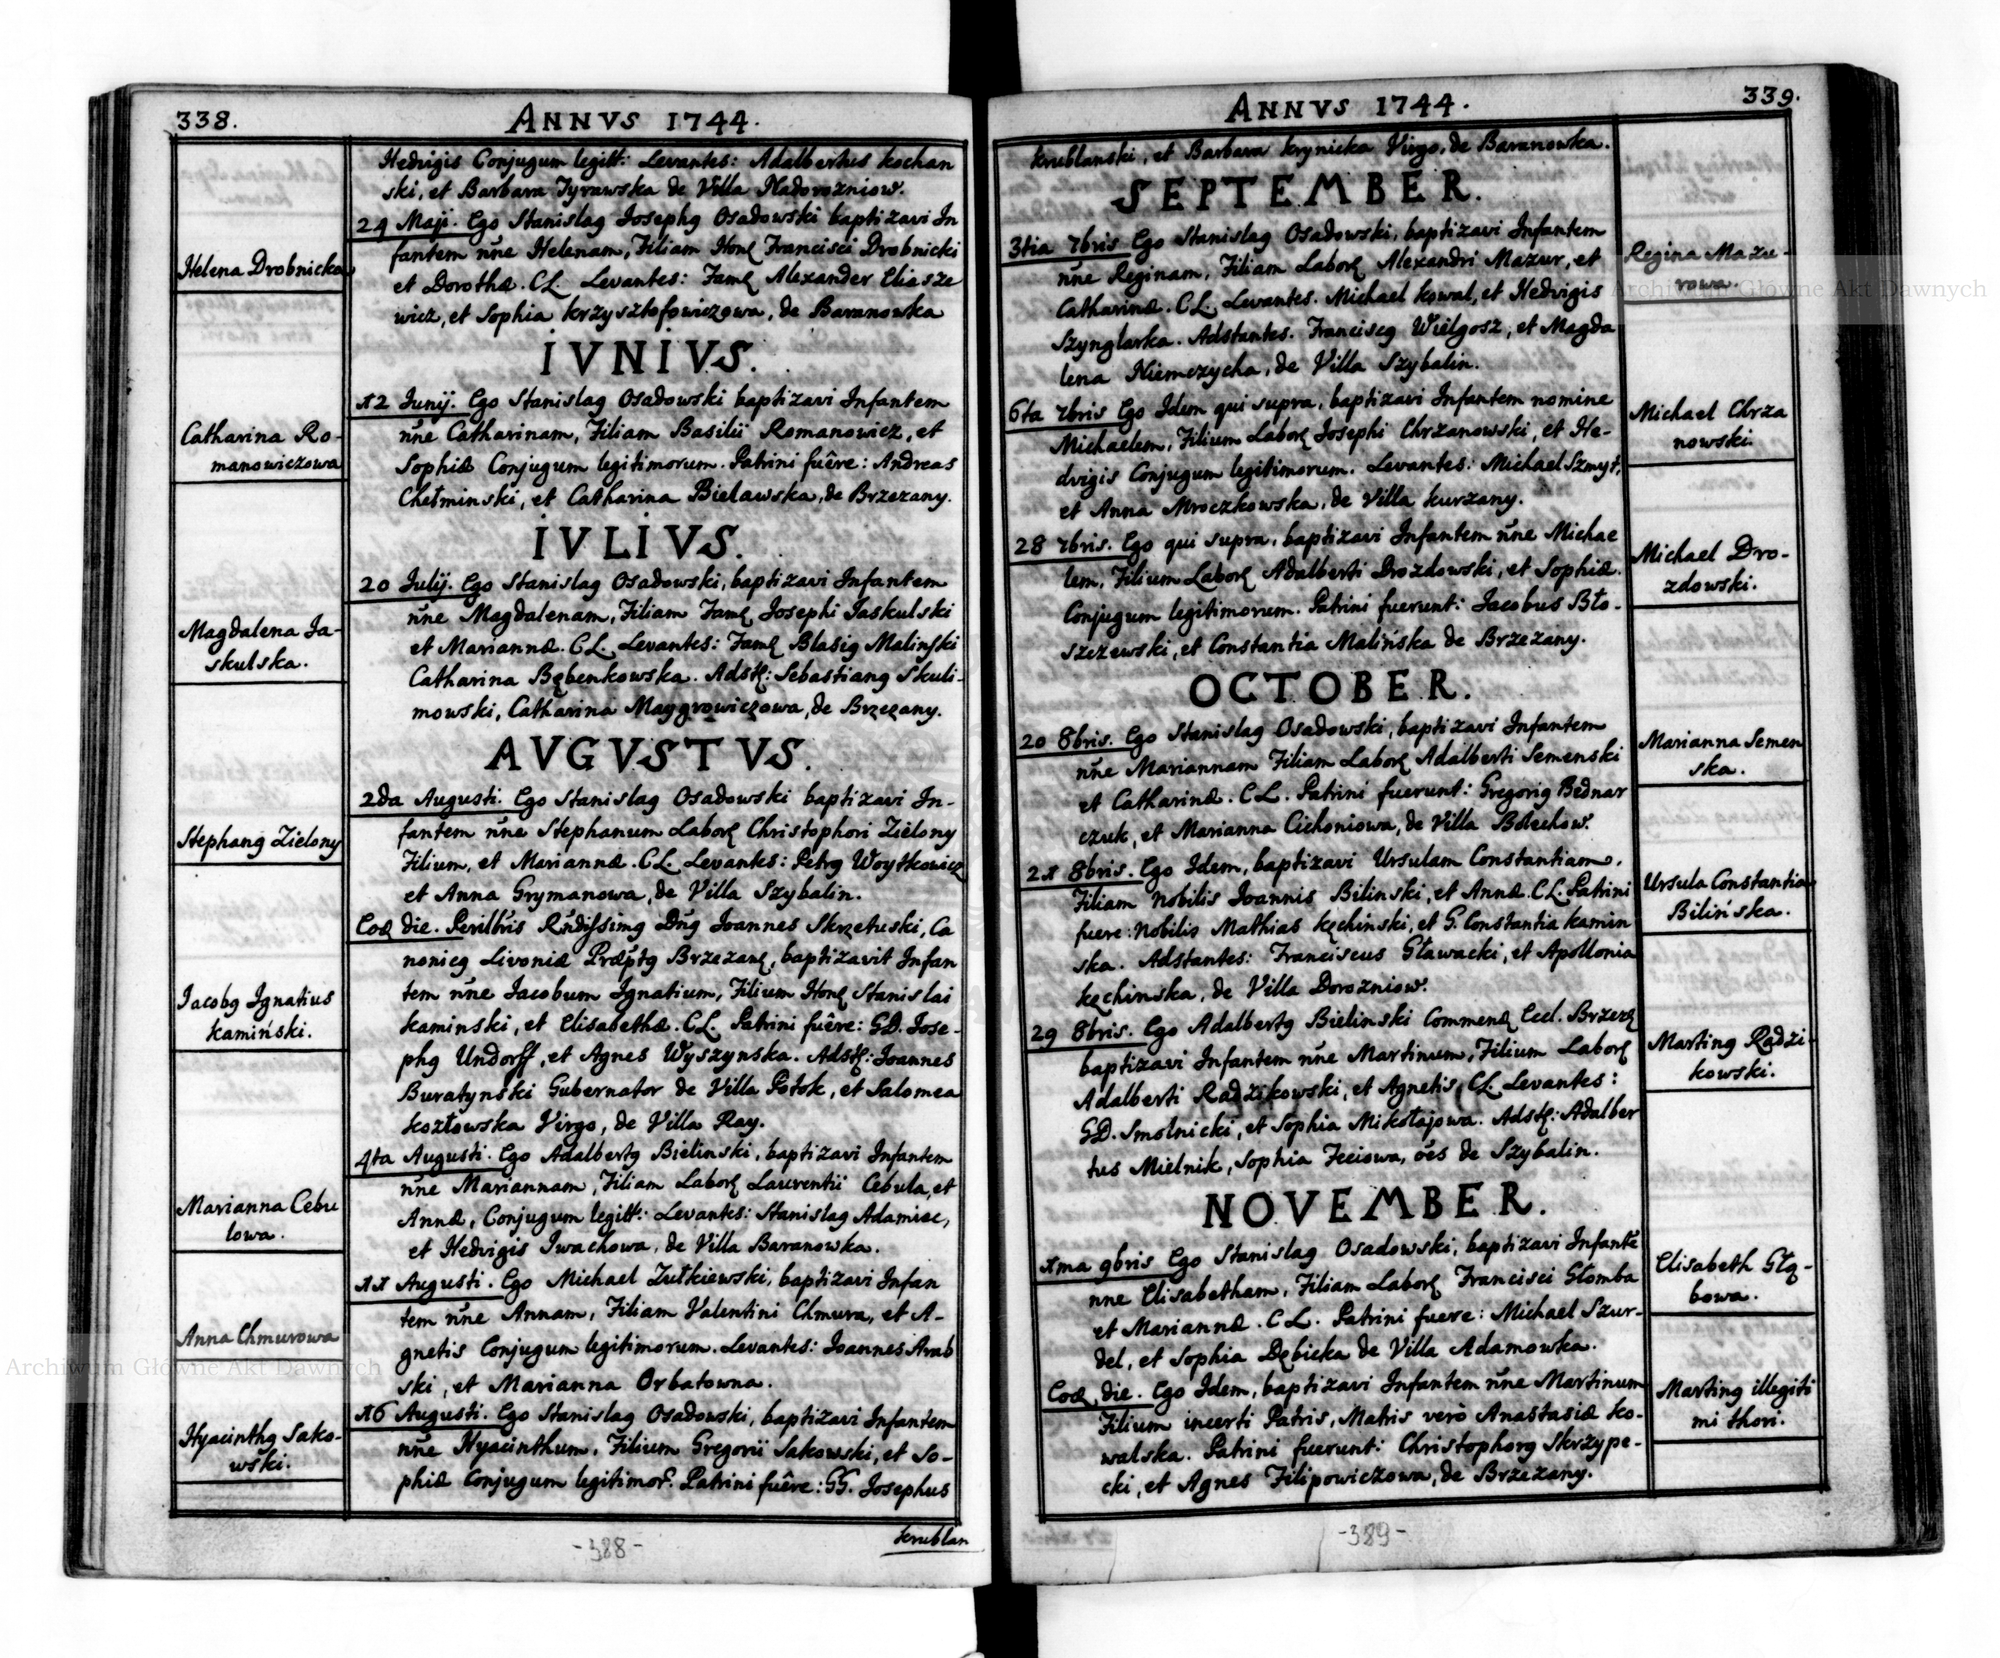 338.
ANNVS 1744.
Hedvigis Conjugum legitt: Levantes: Adalbertus Kochan
ski, et Barbara Tyrawska de Villa Nadorozniow.
Helena Drobnicka
29 Maji. Ego Stanislaꝰ Josephꝰ Osadowski baptizavi In
fantem nñe Helenam, Filiam Honꝝ Francisci Drobnicki
et Dorothæ. CL. Levantes: Famꝝ Alexander Eliasze
wicz, et Sophia Krzysztofowiczowa, de Baranowka
IVNIVS.
Catharina Ro-
manowiczowa
12 Junij. Ego Stanislaꝰ Osadowski baptizavi Infantem
nñe Catharinam, Filiam Basilii Romanowicz, et
Sophiæ Conjugum legitimorum. Patrini fuêre: Andreas
Chełminski, et Catharina Bielawska, de Brzezany.
IVLIVS.
Magdalena Ja-
skulska.
20 Julij. Ego Stanislaꝰ Osadowski, baptizavi Infantem
nñe Magdalenam, Filiam Famꝝ Josephi Jaskulski
et Mariannæ. CL. Levantes: Famꝝ Blasiꝰ Malinski
Catharina Bębenkowska. Adstꝝ: Sebastianꝰ Skuli-
mowski, Catharina Maygrowiczowa, de Brzezany.
AVGVSTVS.
Stephanꝰ Zielony
2da Augusti. Ego Stanislaꝰ Osadowski baptizavi In-
fantem nñe Stephanum Laborꝝ Christophori Zielony
Filium, et Mariannæ. CL. Levantes: Petrꝰ Woytkowicz
et Anna Grymanowa, de Villa Szybalin.
Jacobꝰ Ignatius
Kamiński.
Eoꝝ die. Perillris Rñdissimꝰ Dñꝰ Joannes Skrzetuski, Ca
nonicꝰ Livoniæ Præptꝰ Brzezanꝝ, baptizavit Infan
tem nñe Jacobum Ignatium, Filium Honꝝ Stanislai
Kaminski, et Elisabethæ. CL. Patrini fuêre: GD. Jose-
phꝰ Undorff, et Agnes Wyszynska. Adstꝝ: Joannes
Buratynski Gubernator de Villa Potok, et Salomea
Kozłowska Virgo, de Villa Ray.
Marianna Cebu
lowa.
4ta Augusti. Ego Adalbertꝰ Bielinski, baptizavi Infantem
nñe Mariannam, Filiam Laborꝝ Laurentii Cebula, et
Annæ, Conjugum legitt: Levantes: Stanislaꝰ Adamiec,
et Hedvigis Iwachowa, de Villa Baranowka.
Anna Chmurowa
11 Augusti. Ego Michael Zułkiewski, baptizavi Infan
tem nñe Annam, Filiam Valentini Chmura, et A-
gnetis Conjugum legitimorum. Levantes: Joannes Arab
ski, et Marianna Orbatowna.
Hyacinthꝰ Sako-
wski.
16 Augusti. Ego Stanislaꝰ Osadowski, baptizavi Infantem
nñe Hyacinthum, Filium Gregorii Sakowski, et So-
phiæ Conjugum legitimorꝝ. Patrini fuêre: GG. Josephus
Krublan
-388-
339.
ANNVS 1744.
Krublanski, et Barbara Krynicka Virgo, de Baranowka.
SEPTEMBER.
3tia 7bris Ego Stanislaꝰ Osadowski, baptizavi Infantem
nñe Reginam, Filiam Laborꝝ Alexandri Mazur, et
Catharinæ. CL. Levantes. Michael Kowal, et Hedvigis
Szynglarka. Adstantes. Franciscꝰ Wielgosz, et Magda
lena Niemczycha, de Villa Szybalin.
Regina Mazu-
rowa.
6ta 7bris Ego Idem qui supra, baptizavi Infantem nomine
Michaelem, Filium Laborꝝ Josephi Chrzanowski, et He-
dvigis Conjugum legitimorum. Levantes: Michael Szmyt,
et Anna Mroczkowska, de Villa Kurzany.
Michael Chrza
nowski.
28 7bris. Ego qui supra, baptizavi Infantem nñe Michae
lem, Filium Laborꝝ Adalberti Drozdowski, et Sophiæ.
Conjugum legitimorum. Patrini fuerunt: Jacobus Bło-
szczewski, et Constantia Malińska de Brzezany.
Michael Dro-
zdowski.
OCTOBER.
20 8bris. Ego Stanislaꝰ Osadowski, baptizavi Infantem
nñe Mariannam Filiam Laborꝝ Adalberti Semenski
et Catharinæ. CL. Patrini fuerunt: Gregoriꝰ Bednar
czuk, et Marianna Cichoniowa, de Villa Botechow.
Marianna Semen
ska.
21 8bris. Ego Idem, baptizavi Ursulam Constantiam,
Filiam Nobilis Joannis Bilinski, et Annæ. CL. Patrini
fuere: Nobilis Mathias Kęchinski, et G. Constantia Kamin
ska. Adstantes: Franciscus Gławacki, et Apollonia
Kęchinska, de Villa Dorozniow.
Ursula Constantia
Bilińska.
29 8bris. Ego Adalbertꝰ Bielinski Commenꝝ Eccl. Brzezꝝ
baptizavi Infantem nñe Martinum, Filium Laborꝝ
Adalberti Radzikowski, et Agnetis, CL. Levantes:
GD. Smolnicki, et Sophia Mikołajowa. Adstꝝ: Adalber
tus Mielnik, Sophia Feciowa, oẽs de Szybalin.
Martinꝰ Radzi-
kowski.
NOVEMBER.
1ma 9bris Ego Stanislaꝰ Osadowski, baptizavi Infantẽ
nne Elisabetham, Filiam Laborꝝ Francisci Głomba
et Mariannæ. CL. Patrini fuere: Michael Szur-
del, et Sophia Dębicka de Villa Adamowka.
Elisabeth Głą-
bowa.
Eoꝝ die. Ego Idem, baptizavi Infantem nñe Martinum
Filium incerti Patris, Matris verò Anastasiæ Ko-
walska. Patrini fuerunt: Christophorꝰ Skrzype-
cki, et Agnes Filipowiczowa, de Brzezany.
Martinꝰ illegiti
mi thori.
-389-
Archiwum Główne Akt Dawnych
Archiwum Główne Akt Dawnych